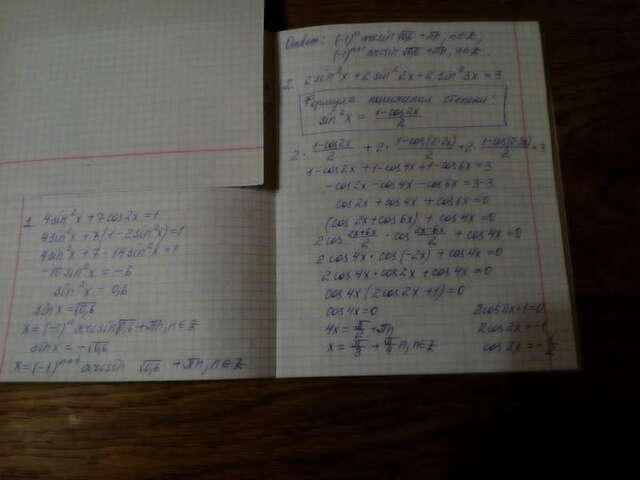 1. 4sin²x + 7cos2x = 1
4sin²x + 7(1 - 2sin²x) = 1
4sin²x + 7 - 14sin²x = 1
-10sin²x = -6
sin²x = 0,6
sin x = √0,6
x = (-1)ⁿ arcsin √0,6 + πn, n∈Z
sin x = -√0,6
x = (-1)ⁿ⁺¹ arcsin √0,6 + πn, n∈Z
Ответ: (-1)ⁿ arcsin √0,6 + πn, n∈Z;
(-1)ⁿ⁺¹ arcsin √0,6 + πn, n∈Z.
2. 2sin²x + 2sin²2x + 2sin²3x = 3
Формула понижения степени:
sin²x = (1-cos2x)/2
2·(1-cos2x)/2 + 2·(1-cos(2·2x))/2 + 2·(1-cos(2·3x))/2 = 3
1-cos2x + 1-cos4x + 1-cos6x = 3
-cos2x - cos4x - cos6x = 3-3
cos2x + cos4x + cos6x = 0
(cos2x + cos6x) + cos4x = 0
2cos (2x+6x)/2 · cos (2x-6x)/2 + cos4x = 0
2cos4x · cos(-2x) + cos4x = 0
2cos4x · cos2x + cos4x = 0
cos4x (2cos2x + 1) = 0
cos4x = 0 2cos2x+1=0
4x = π/2 + πn 2cos2x = -1
x = π/8 + π/4 n, n∈Z cos2x = -1/2